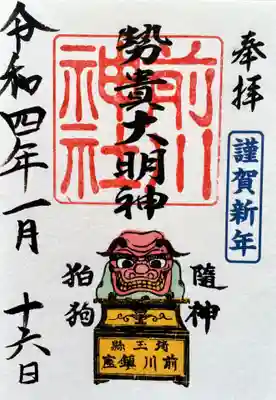 奉拝
謹賀新年
前川
神社
勢貴大明神
隨神
狛狗
埼玉縣
前川鎮座
令和四年一月
十六日